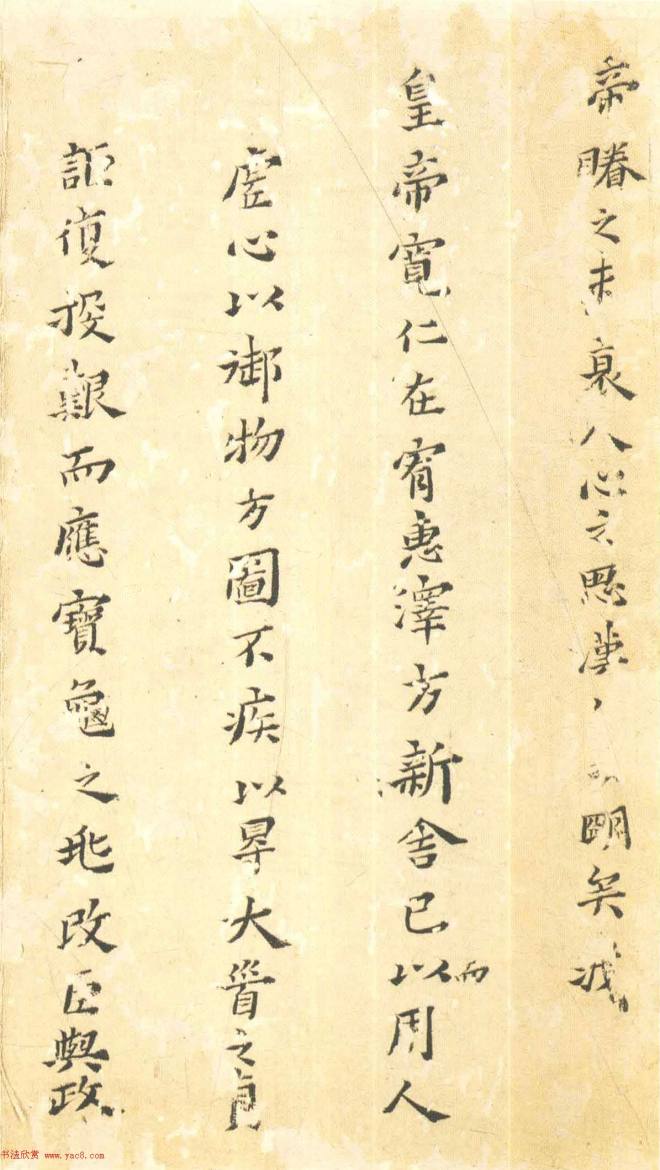 帝睠之未衰人心之思漢明矣
皇帝寬仁在宥惠澤方新舍已以而用人
虛心以御物方圖不疾以㝵大首之貞
詎復投艱而應寶龜之兆改臣與政
书法欣赏 www.yac8.com